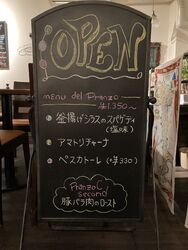 OPEN
menu del Pranzo
¥1,350~
釜揚げシラスのスパゲティ
(塩味)
アマトリチャーナ
ペスカトーレ (+¥330)
Pranzo
second
豚バラ肉のロースト